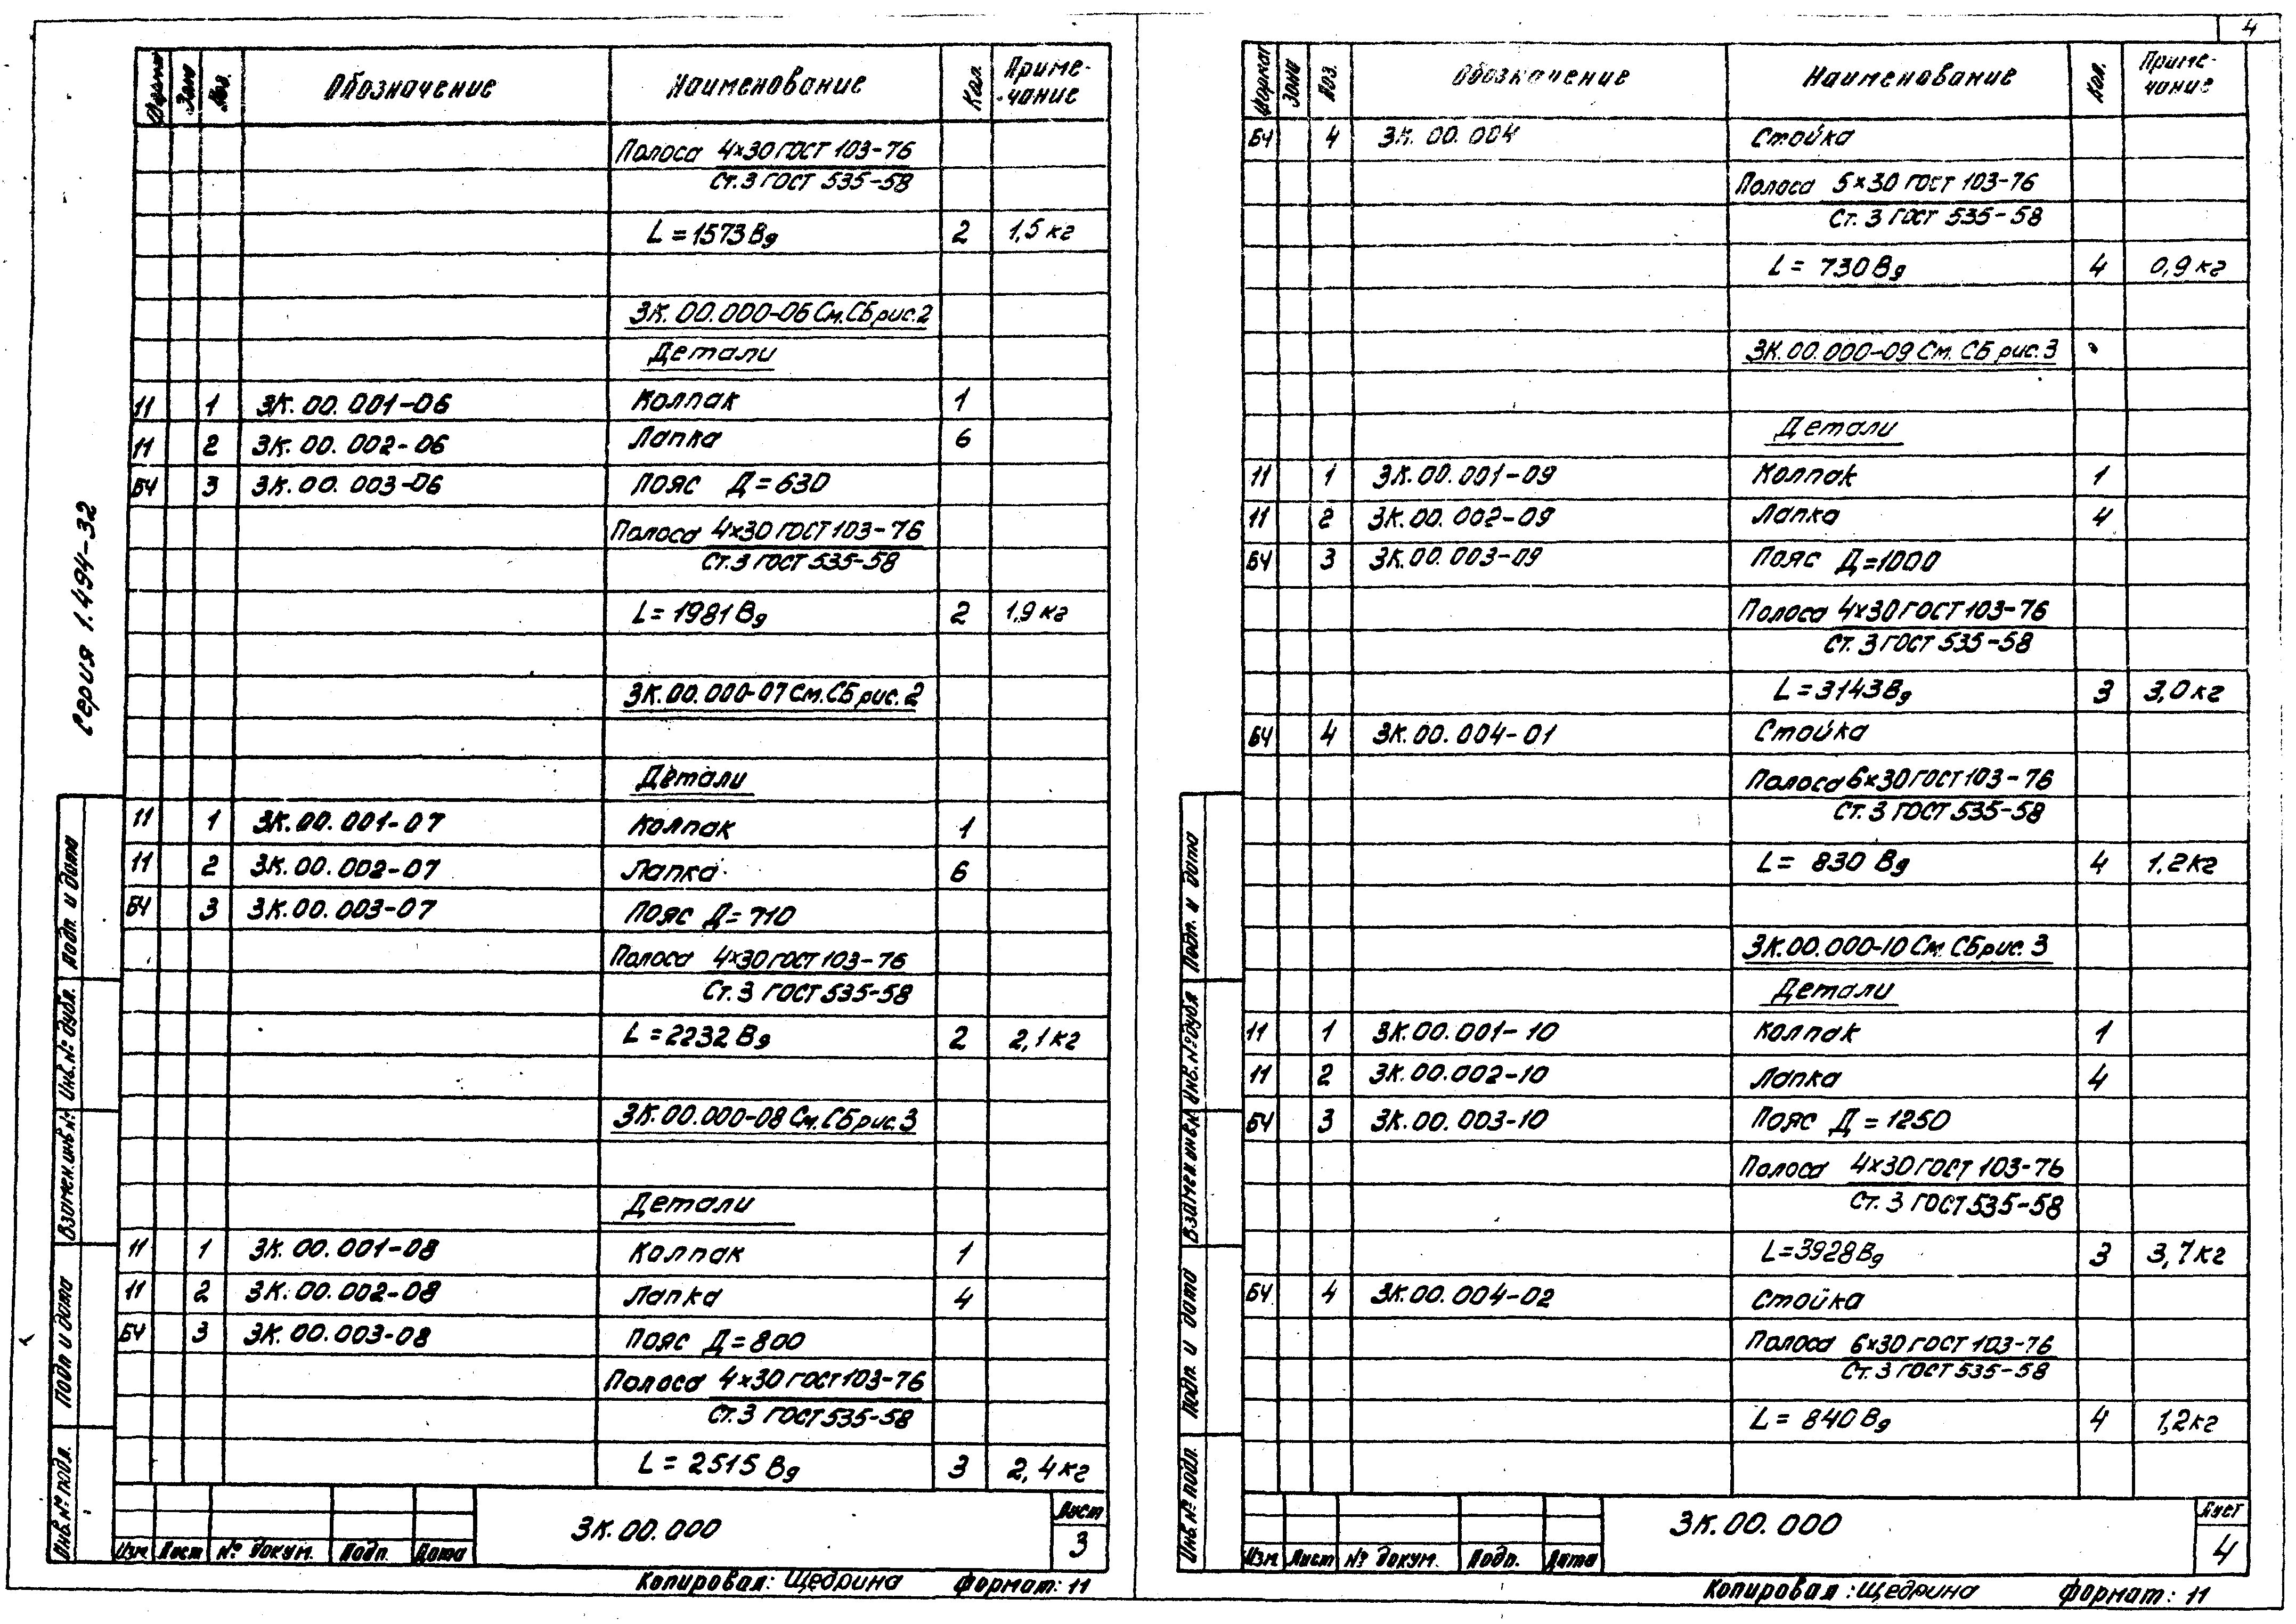 4
Серия 1.494-32
Формат Зона Поз. Обозначение Наименование Кол. Приме-
чание
Полоса 4×30 ГОСТ 103-76
Ст.3 ГОСТ 535-58
L=1573 Вд 2 1,5 кг
ЗК.00.000-06 См.СБ рис.2
Детали
11 1 ЗК.00.001-06 Колпак 1
11 2 ЗК.00.002-06 Лапка 6
БЧ 3 ЗК.00.003-06 Пояс Д=630
Полоса 4×30 ГОСТ 103-76
Ст.3 ГОСТ 535-58
L=1981 Вд 2 1,9 кг
ЗК.00.000-07 См.СБ рис.2
Детали
11 1 ЗК.00.001-07 Колпак 1
11 2 ЗК.00.002-07 Лапка 6
БЧ 3 ЗК.00.003-07 Пояс Д=710
Полоса 4×30 ГОСТ 103-76
Ст.3 ГОСТ 535-58
L=2232 Вд 2 2,1 кг
ЗК.00.000-08 См.СБ рис.3
Детали
11 1 ЗК.00.001-08 Колпак 1
11 2 ЗК.00.002-08 Лапка 4
БЧ 3 ЗК.00.003-08 Пояс Д=800
Полоса 4×30 ГОСТ 103-76
Ст.3 ГОСТ 535-58
L=2515 Вд 3 2,4 кг
Подп. и дата
Инв.№ дубл.
Взамен.инв.№
Подп и дата
Инв.№ подл.
Изм Лист № докум. Подп. Дата
ЗК.00.000
Лист
3
Копировал: Щедрина формат: 11
Формат Зона Поз. Обозначение Наименование Кол. Приме-
чание
БЧ 4 ЗК.00.004 Стойка
Полоса 5×30 ГОСТ 103-76
Ст.3 ГОСТ 535-58
L= 730 Вд 4 0,9 кг
ЗК.00.000-09 См. СБ рис.3
Детали
11 1 ЗК.00.001-09 Колпак 1
11 2 ЗК.00.002-09 Лапка 4
БЧ 3 ЗК.00.003-09 Пояс Д=1000
Полоса 4×30 ГОСТ 103-76
Ст.3 ГОСТ 535-58
L=3143 Вд 3 3,0 кг
БЧ 4 ЗК.00.004-01 Стойка
Полоса 6×30 ГОСТ 103-76
Ст.3 ГОСТ 535-58
L= 830 Вд 4 1,2 кг
ЗК.00.000-10 См. СБ рис.3
Детали
11 1 ЗК.00.001-10 Колпак 1
11 2 ЗК.00.002-10 Лапка 4
БЧ 3 ЗК.00.003-10 Пояс Д=1250
Полоса 4×30 ГОСТ 103-76
Ст.3 ГОСТ 535-58
L=3928 Вд 3 3,7 кг
БЧ 4 ЗК.00.004-02 Стойка
Полоса 6×30 ГОСТ 103-76
Ст.3 ГОСТ 535-58
L= 840 Вд 4 1,2 кг
Подп. и дата
Инв.№ дубл
Взамен.инв.№
Подп. и дата
Инв.№ подл.
Изм Лист № докум. Подп. Дата
ЗК.00.000
Лист
4
Копировал: Щедрина формат: 11